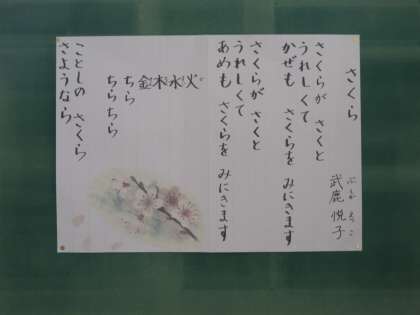 さくら
武鹿 悦子
さくらが さくと
うれしくて
かぜも さくらを みにきます
さくらが さくと
うれしくて
あめも さくらを みにきます
金木水火
ちら
ちらちら
ことしの さくら
さようなら